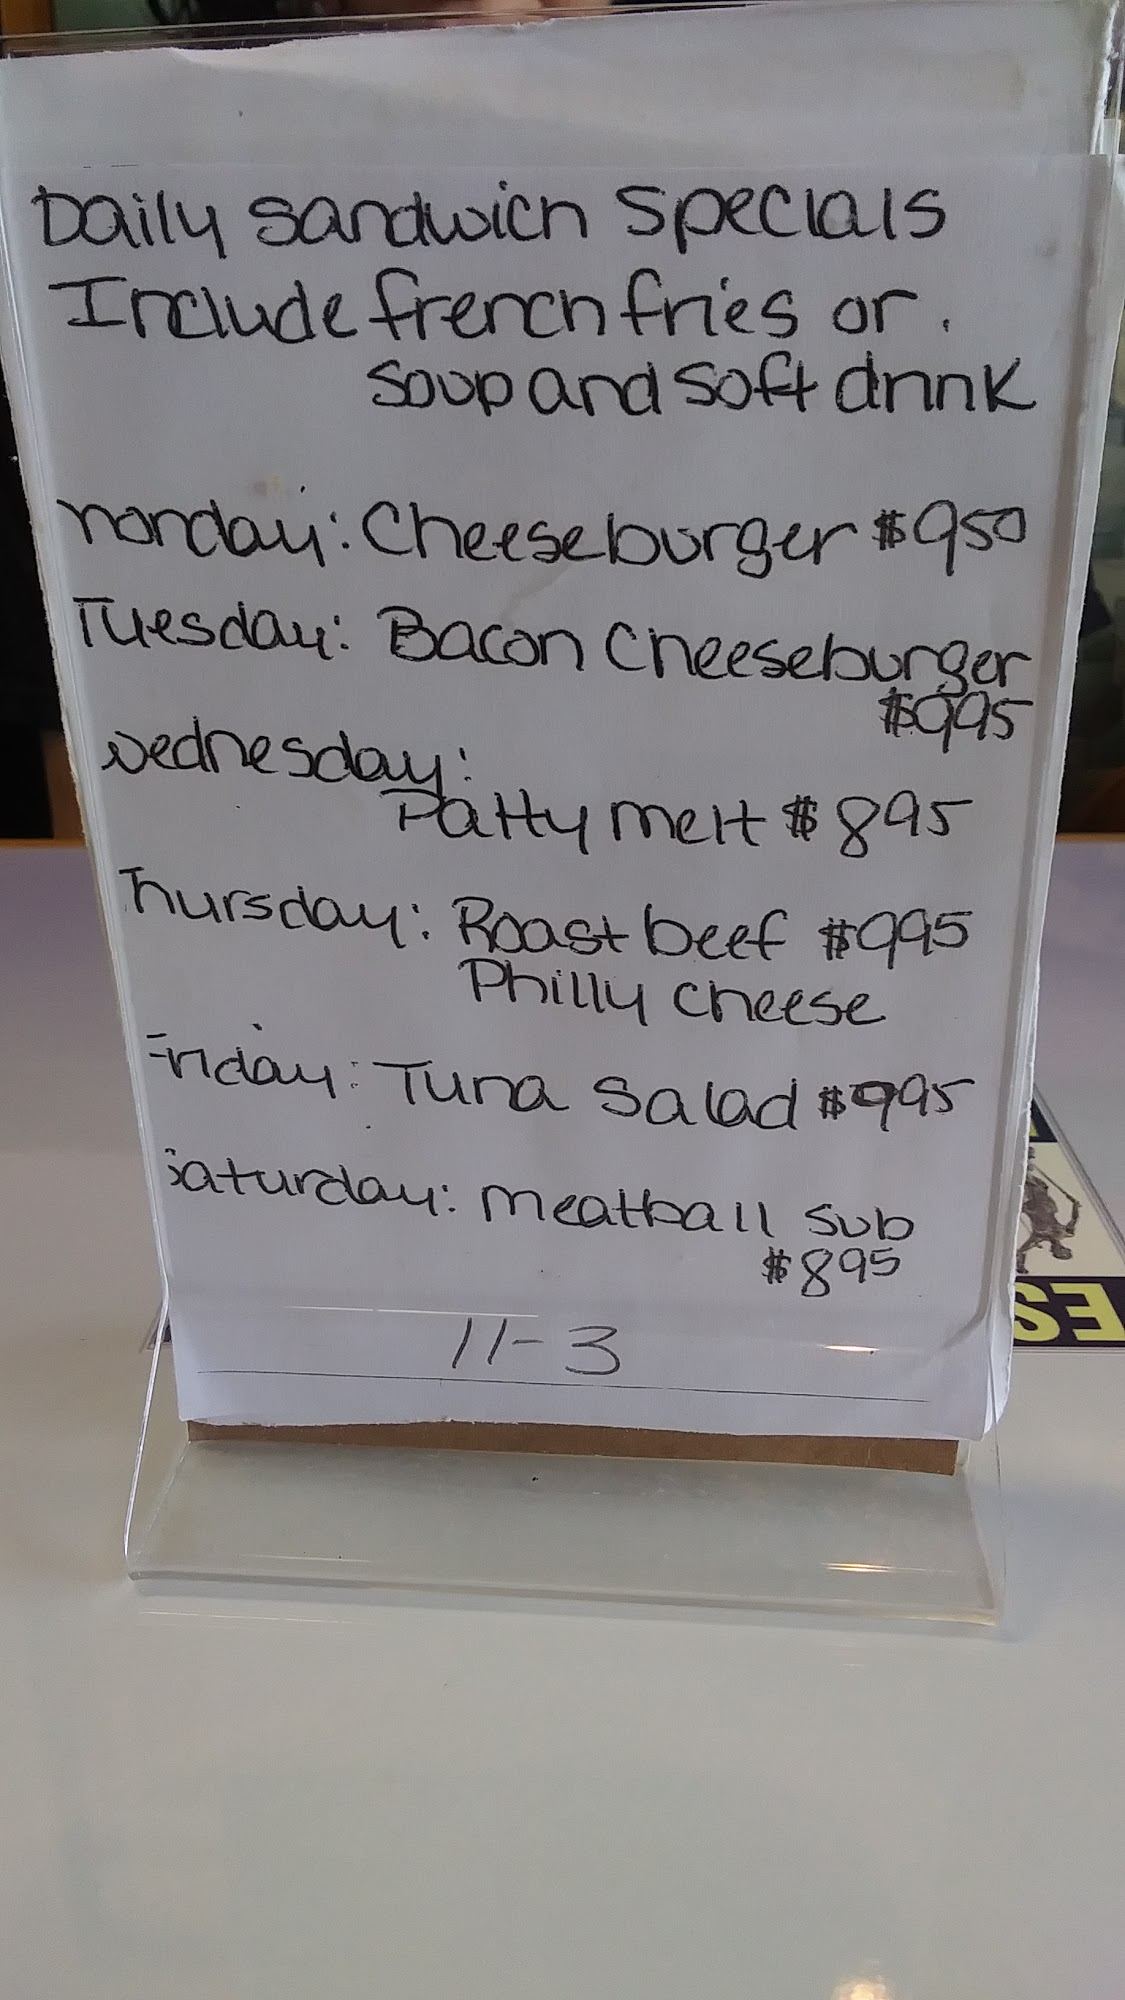 Daily Sandwich Specials
Include french fries or
Soup and Soft drink
Monday: Cheeseburger $950
Tuesday: Bacon Cheeseburger
$995
Wednesday:
Patty melt $895
Thursday: Roast beef $995
Philly cheese
Friday: Tuna Salad $995
Saturday: Meatball Sub
$895
11-3
ES